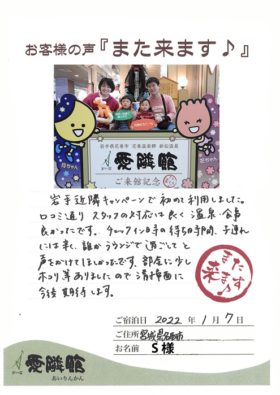 お客様の声『また来ます♪』
岩手県花巻市 花巻温泉郷 新鉛温泉
愛隣館
ご来館記念
岩手近隣キャンペーンで初めて利用しました。
口コミ通り スタッフの対応は良く 温泉・食事
良かったです。チェックイン時の待ち時間、子連れ
には辛く、誰かラウンジで過ごしてと
声をかけてほしかったです。部屋に少し
ホコリ等ありましたので清掃面に
今後期待します。
また来ます♪
ご宿泊日 2022年1月7日
ご住所 宮城県名取市
お名前 S様
愛隣館
あいりんかん